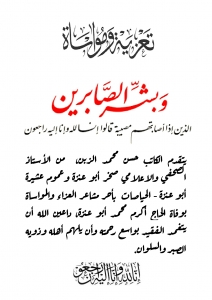 تعزية ومواساة
وبشر الصابرين
الذين إذا أصابتهم مصيبة قالوا إنا لله وإنا إليه راجعون
يتقدم الكاتب حسن محمد الزبن، من الأستاذ
الصحفي والاعلامي صخر أبو عنزة وعموم عشيرة
أبو عنزة - الحياصات بأحر مشاعر العزاء والمواساة
بوفاة الحاج أكرم محمد أبو عنزة، راعين الله أن
يتغمد الفقيد بواسع رحمته وأن يلهم أهله وذويه
الصبر والسلوان.
إنا لله وإنا إليه راجعون